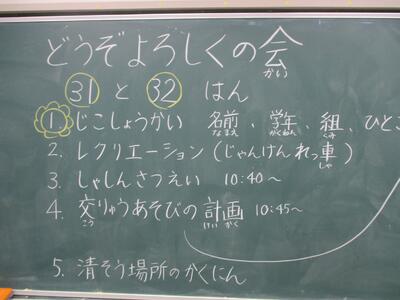 どうぞよろしくの会
かい
31 と 32 はん
1 じこしょうかい 名前、学年、組、ひとこ
なまえ がくねん くみ
2. レクリエーション(じゃんけんれっ車)
しゃ
3. しゃしんさつえい 10:40〜
4. 交りゅうあそびの計画 10:45〜
こう けいかく
5. 清そう場所のかくにん